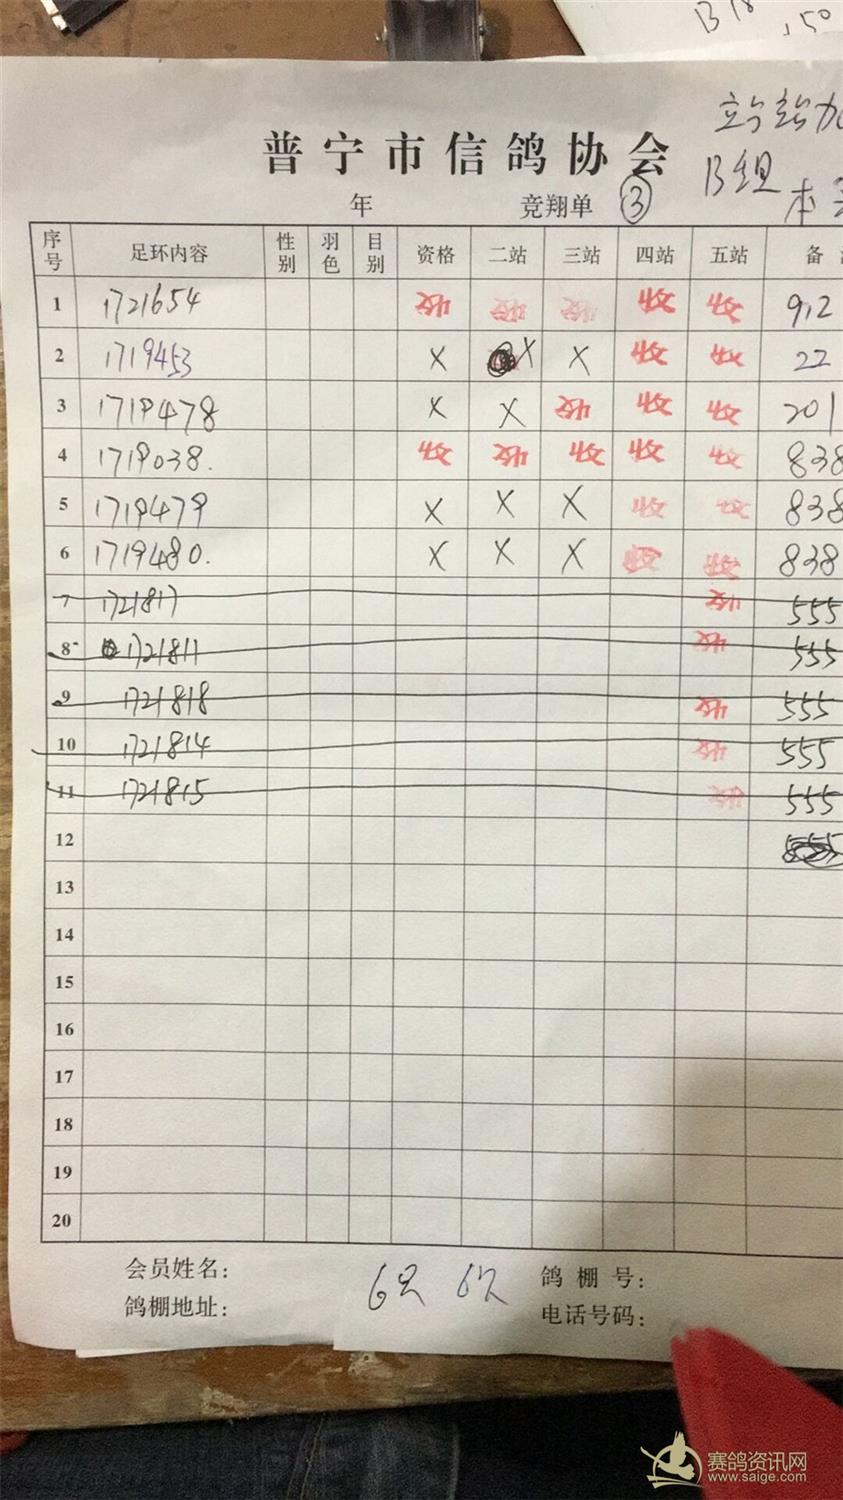 B 18
150
站站加
B组 本
普宁市信鸽协会
年 竞翔单 ③
序号 足环内容 性别 羽色 目别 资格 二站 三站 四站 五站 备
1 1721654 收 收 收 912
2 1719453 X X X 22
3 1719478 X X 收 201
4 1719038. 收 838
5 1719479 X X X 838
6 1719480. X X X 838
7 1721817 收 555
8 1721811 收 555
9 1721818 收 555
10 1721814 收 555
11 1721815 收 555
12
13
14
15
16
17
18
19
20
会员姓名: 6只 6次 鸽棚号:
鸽棚地址: 电话号码:
赛鸽资讯网
www.saige.com